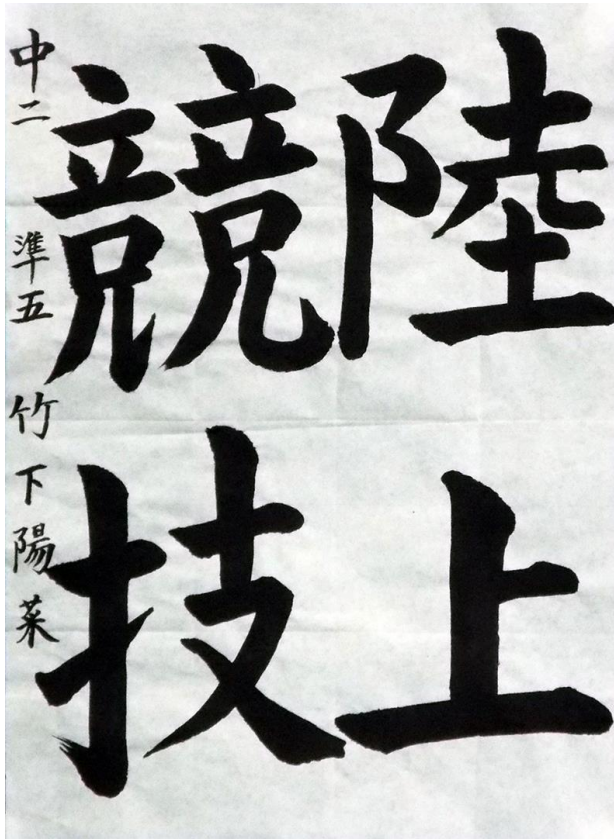 陸上
競技
中二 準五 竹下陽菜